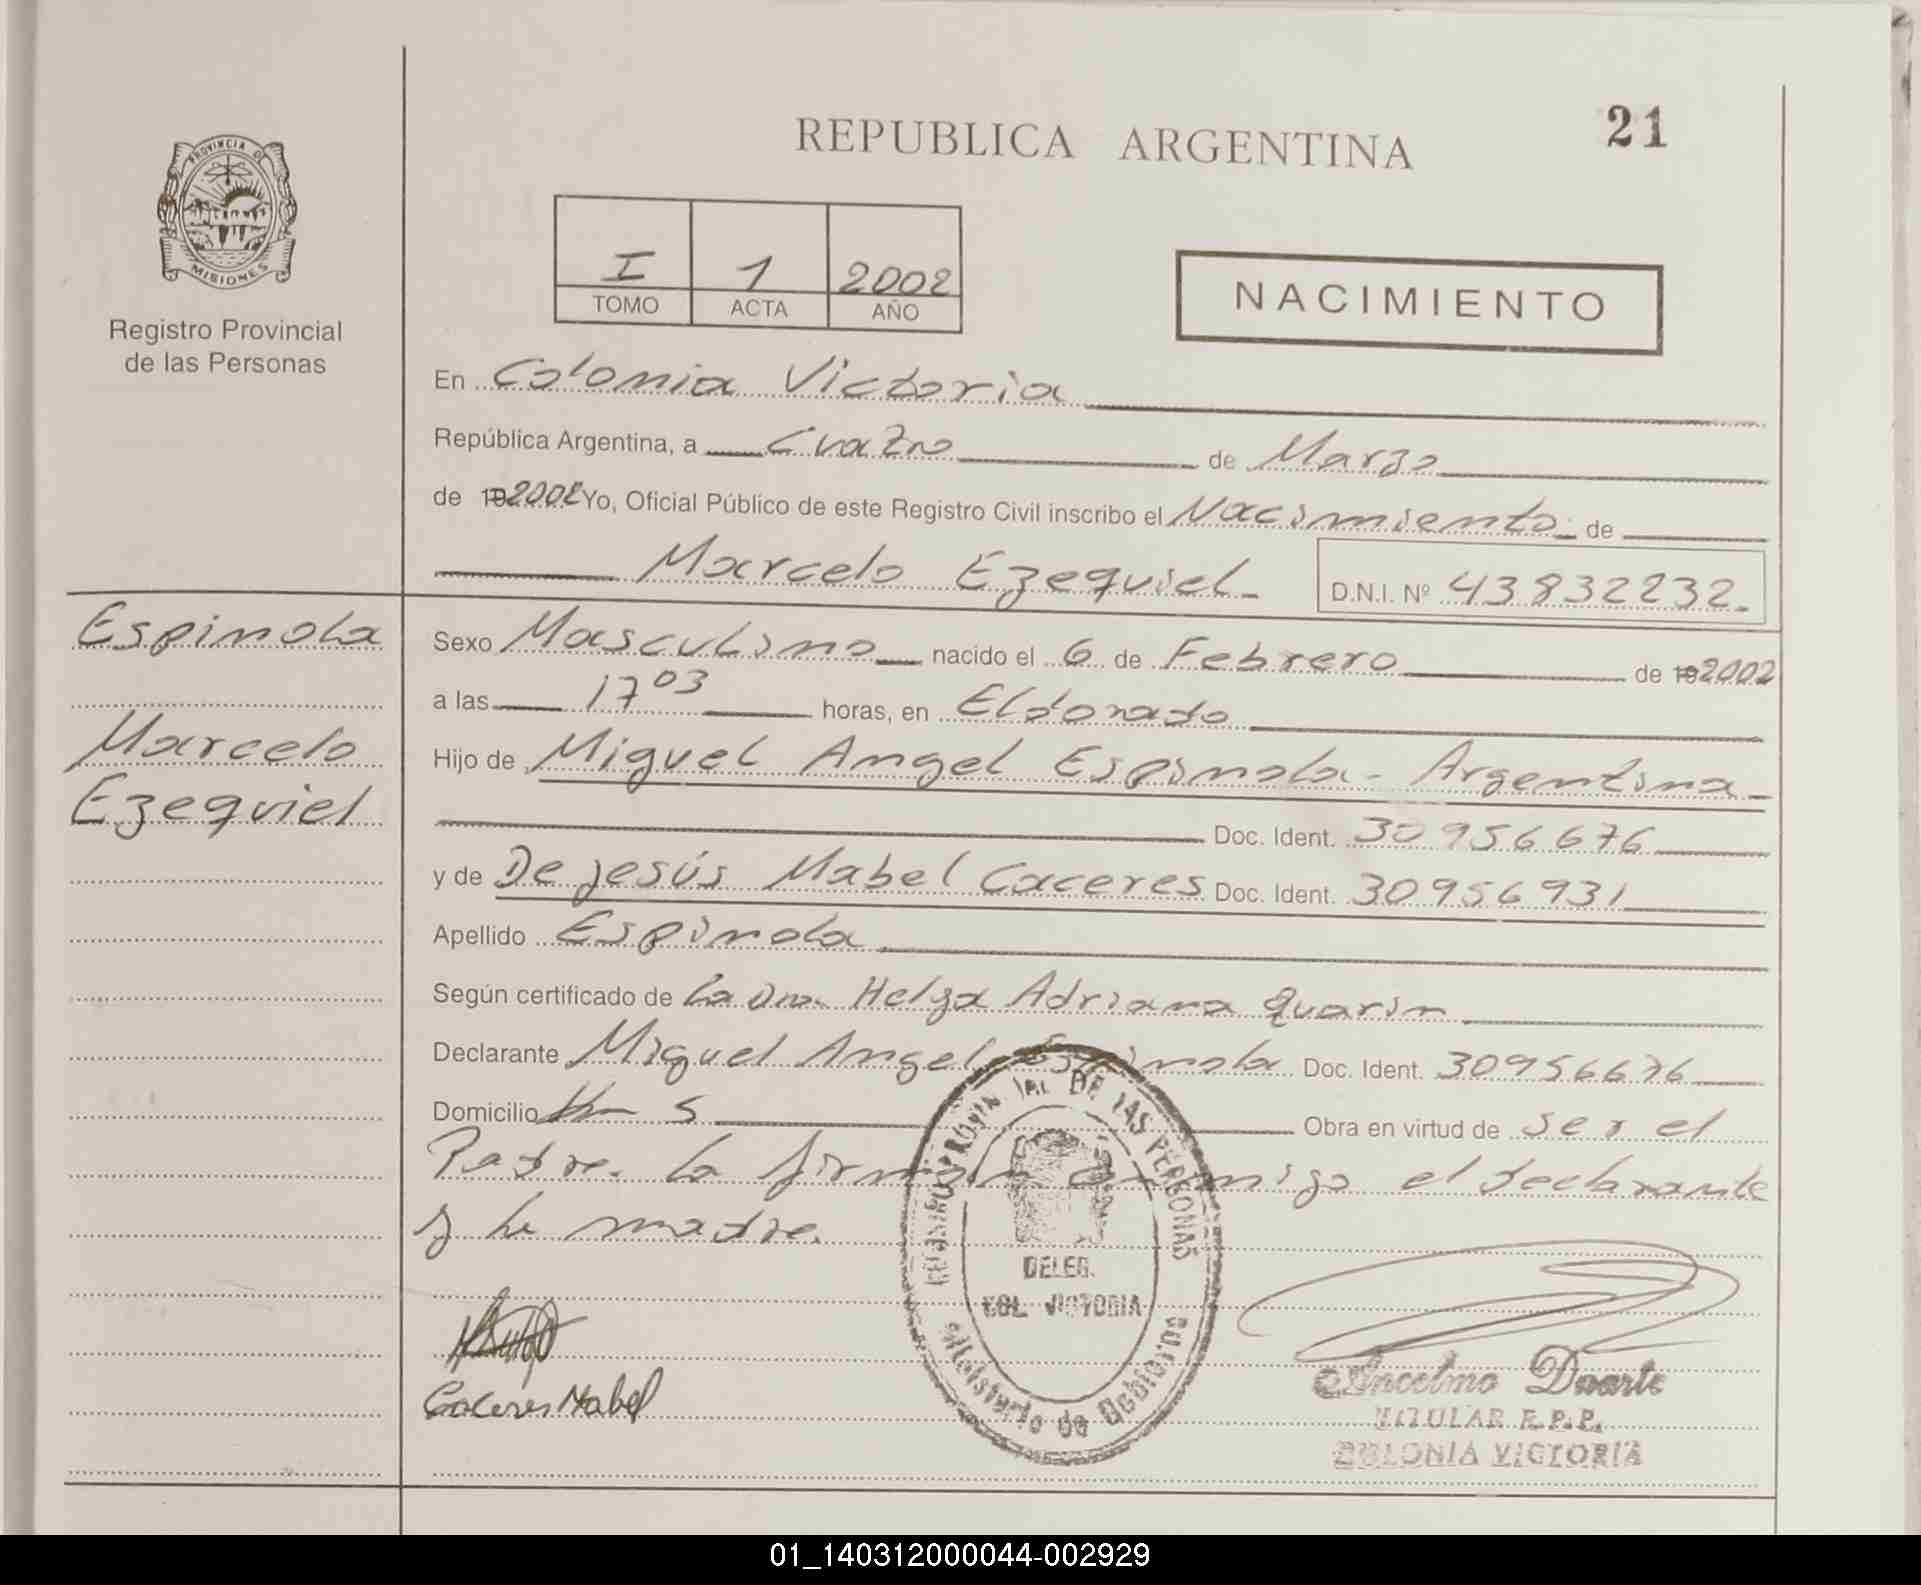 REPUBLICA ARGENTINA
21
PROVINCIA DE
MISIONES
Registro Provincial
de las Personas
I 1 2002
TOMO ACTA AÑO
NACIMIENTO
En Colonia Victoria
República Argentina, a Cuatro de Marzo
de 19 2002 Yo, Oficial Público de este Registro Civil inscribo el Nacimiento de
Marcelo Ezequiel D.N.I. Nº 43832232
Espinola
Marcelo
Ezequiel
Sexo Masculino nacido el 6 de Febrero de 19 2002
a las 17 03 horas, en Eldorado
Hijo de Miguel Angel Espinola - Argentina
Doc. Ident. 30956676
y de De Jesús Mabel Caceres Doc. Ident. 30956931
Apellido Espinola
Según certificado de la Dra. Helga Adriana Quarin
Declarante Miguel Angel Espinola Doc. Ident. 30956676
Domicilio Km 5 Obra en virtud de ser el
Padre. La firman conmigo el declarante
y la madre.
REGISTRO PROVINCIAL DE LAS PERSONAS
DELEG.
COL. VICTORIA
Ministerio de Gobierno
Caceres Mabel
Ancelmo Duarte
TITULAR R.P.P.
COLONIA VICTORIA
01_140312000044-002929